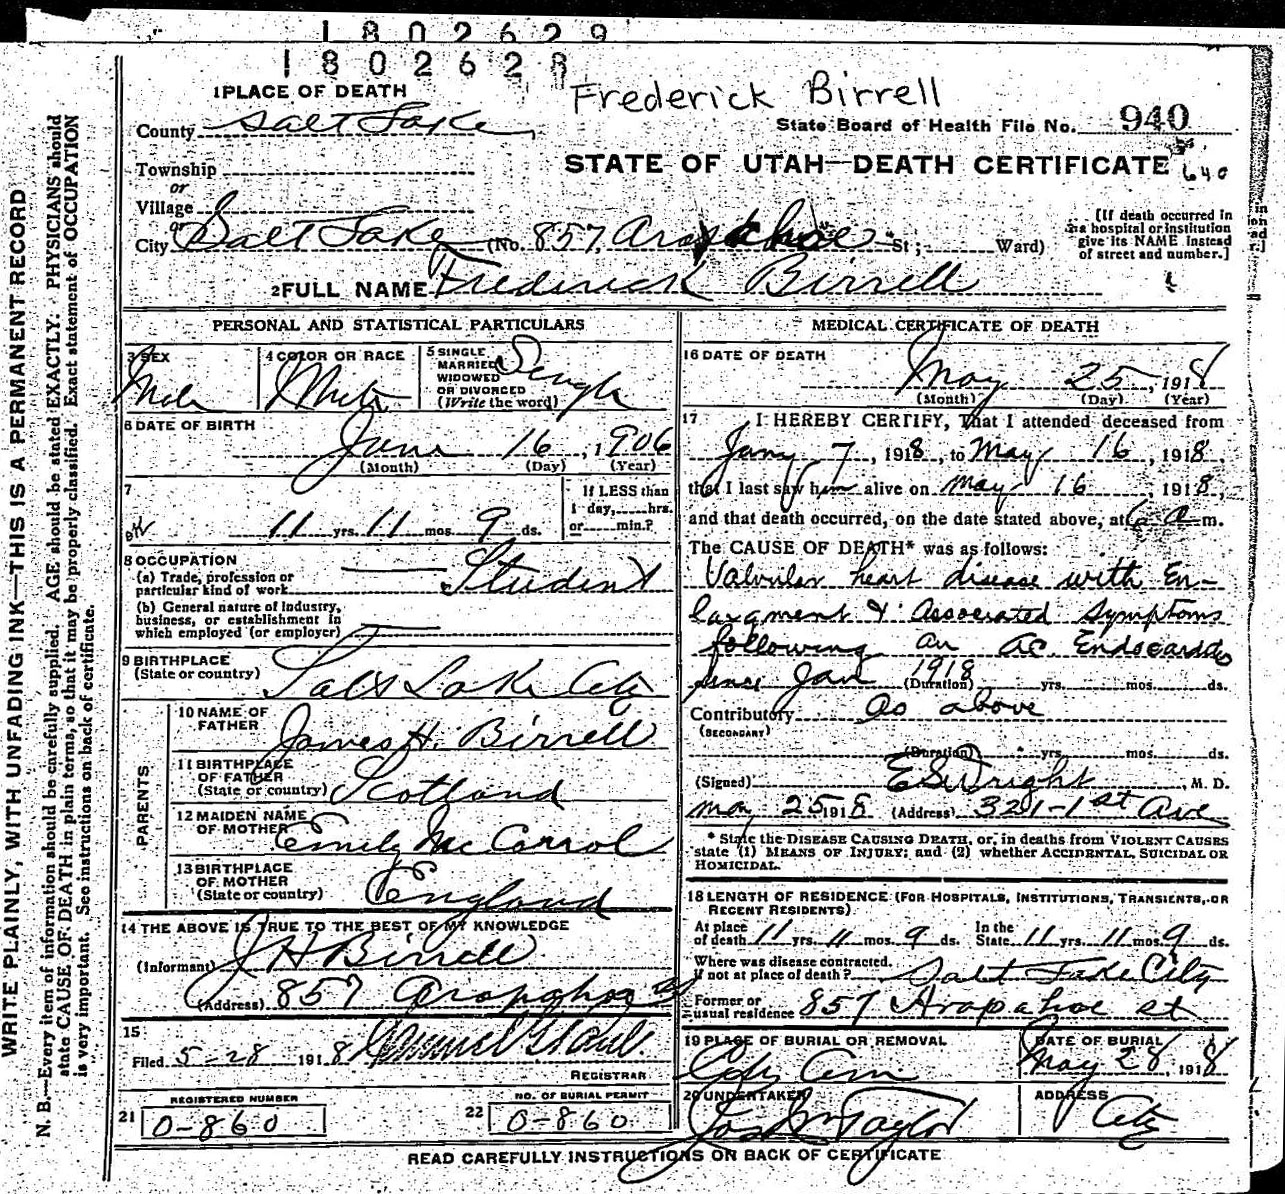 1802629
1802628
1 PLACE OF DEATH
Frederick Birrell
County Salt Lake
State Board of Health File No. 940
Township
STATE OF UTAH—DEATH CERTIFICATE
640
or
Village
or
City Salt Lake (No. 857, Arapahoe St; Ward)
[If death occurred in
a hospital or institution
give its NAME instead
of street and number.]
2 FULL NAME Frederick Birrell
PERSONAL AND STATISTICAL PARTICULARS
3 SEX
Male
4 COLOR OR RACE
White
5 SINGLE,
MARRIED
WIDOWED
OR DIVORCED
(Write the word)
Single
6 DATE OF BIRTH
June 16, 1906
(Month) (Day) (Year)
7
11 yrs. 11 mos. 9 ds.
If LESS than
1 day, hrs.
or min.?
8 OCCUPATION
(a) Trade, profession or
particular kind of work Student
(b) General nature of industry,
business, or establishment in
which employed (or employer)
9 BIRTHPLACE
(State or country) Salt Lake City
PARENTS
10 NAME OF
FATHER James H. Birrell
11 BIRTHPLACE
OF FATHER
(State or country) Scotland
12 MAIDEN NAME
OF MOTHER Emily McCarrol
13 BIRTHPLACE
OF MOTHER
(State or country) England
14 THE ABOVE IS TRUE TO THE BEST OF MY KNOWLEDGE
(Informant) J H Birrell
(Address) 857 Arapahoe St
15
Filed 5-28 1918
REGISTRAR
REGISTERED NUMBER
21 0-860
NO. OF BURIAL PERMIT
22 0-860
MEDICAL CERTIFICATE OF DEATH
16 DATE OF DEATH
May 25, 1918
(Month) (Day) (Year)
17 I HEREBY CERTIFY, That I attended deceased from
Jany 7, 1918, to May 16, 1918,
that I last saw him alive on May 16, 1918,
and that death occurred, on the date stated above, at 6 a m.
The CAUSE OF DEATH* was as follows:
Valvular heart disease with En-
largment & Associated Symptoms
following an Ac. Endocardis
since Jan 1918 (Duration) yrs. mos. ds.
Contributory As above
(SECONDARY)
(Duration) yrs. mos. ds.
(Signed) E S Wright, M. D.
May 25 1918 (Address) 321-1st Ave
* State the DISEASE CAUSING DEATH, or, in deaths from VIOLENT CAUSES
state (1) MEANS OF INJURY; and (2) whether ACCIDENTAL, SUICIDAL OR
HOMICIDAL.
18 LENGTH OF RESIDENCE (FOR HOSPITALS, INSTITUTIONS, TRANSIENTS, OR
RECENT RESIDENTS)
At place
of death 11 yrs. 11 mos. 9 ds. In the
State 11 yrs. 11 mos. 9 ds.
Where was disease contracted.
if not at place of death? Salt Lake City
Former or
usual residence 857 Arapahoe st
19 PLACE OF BURIAL OR REMOVAL
City Cem
DATE OF BURIAL
May 28, 1918
20 UNDERTAKER
Jos Wm Taylor
ADDRESS
City
READ CAREFULLY INSTRUCTIONS ON BACK OF CERTIFICATE
WRITE PLAINLY, WITH UNFADING INK—THIS IS A PERMANENT RECORD
N. B.—Every item of information should be carefully supplied. AGE should be stated EXACTLY. PHYSICIANS should
state CAUSE OF DEATH in plain terms, so that it may be properly classified. Exact statement of OCCUPATION
is very important. See instructions on back of certificate.